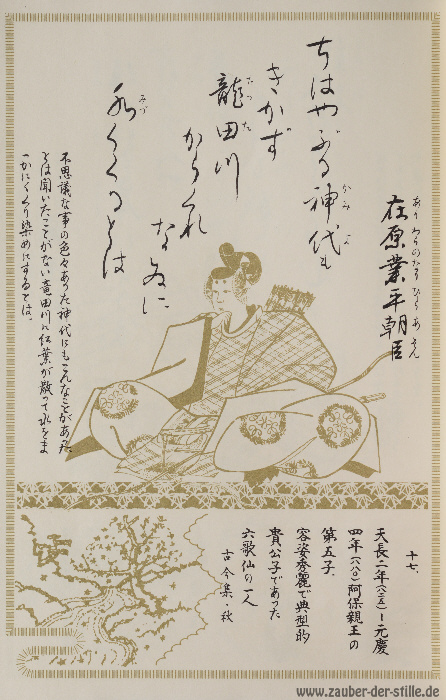 在原業平朝臣
ちはやぶる神代も
きかず
龍田川
からくれ
なゐに
水くくるとは
不思議な事の色々あった神代にもこんなことがあった
とは聞いたことがない竜田川に紅葉が散って水をま
っかにくくり染めにするとは。
十七、
天長二年(八二五)ー元慶
四年(八八〇)阿保親王の
第五子、
容姿秀麗で典型的
貴公子であった
六歌仙の一人
古今集・秋
www.zauber-der-stille.de